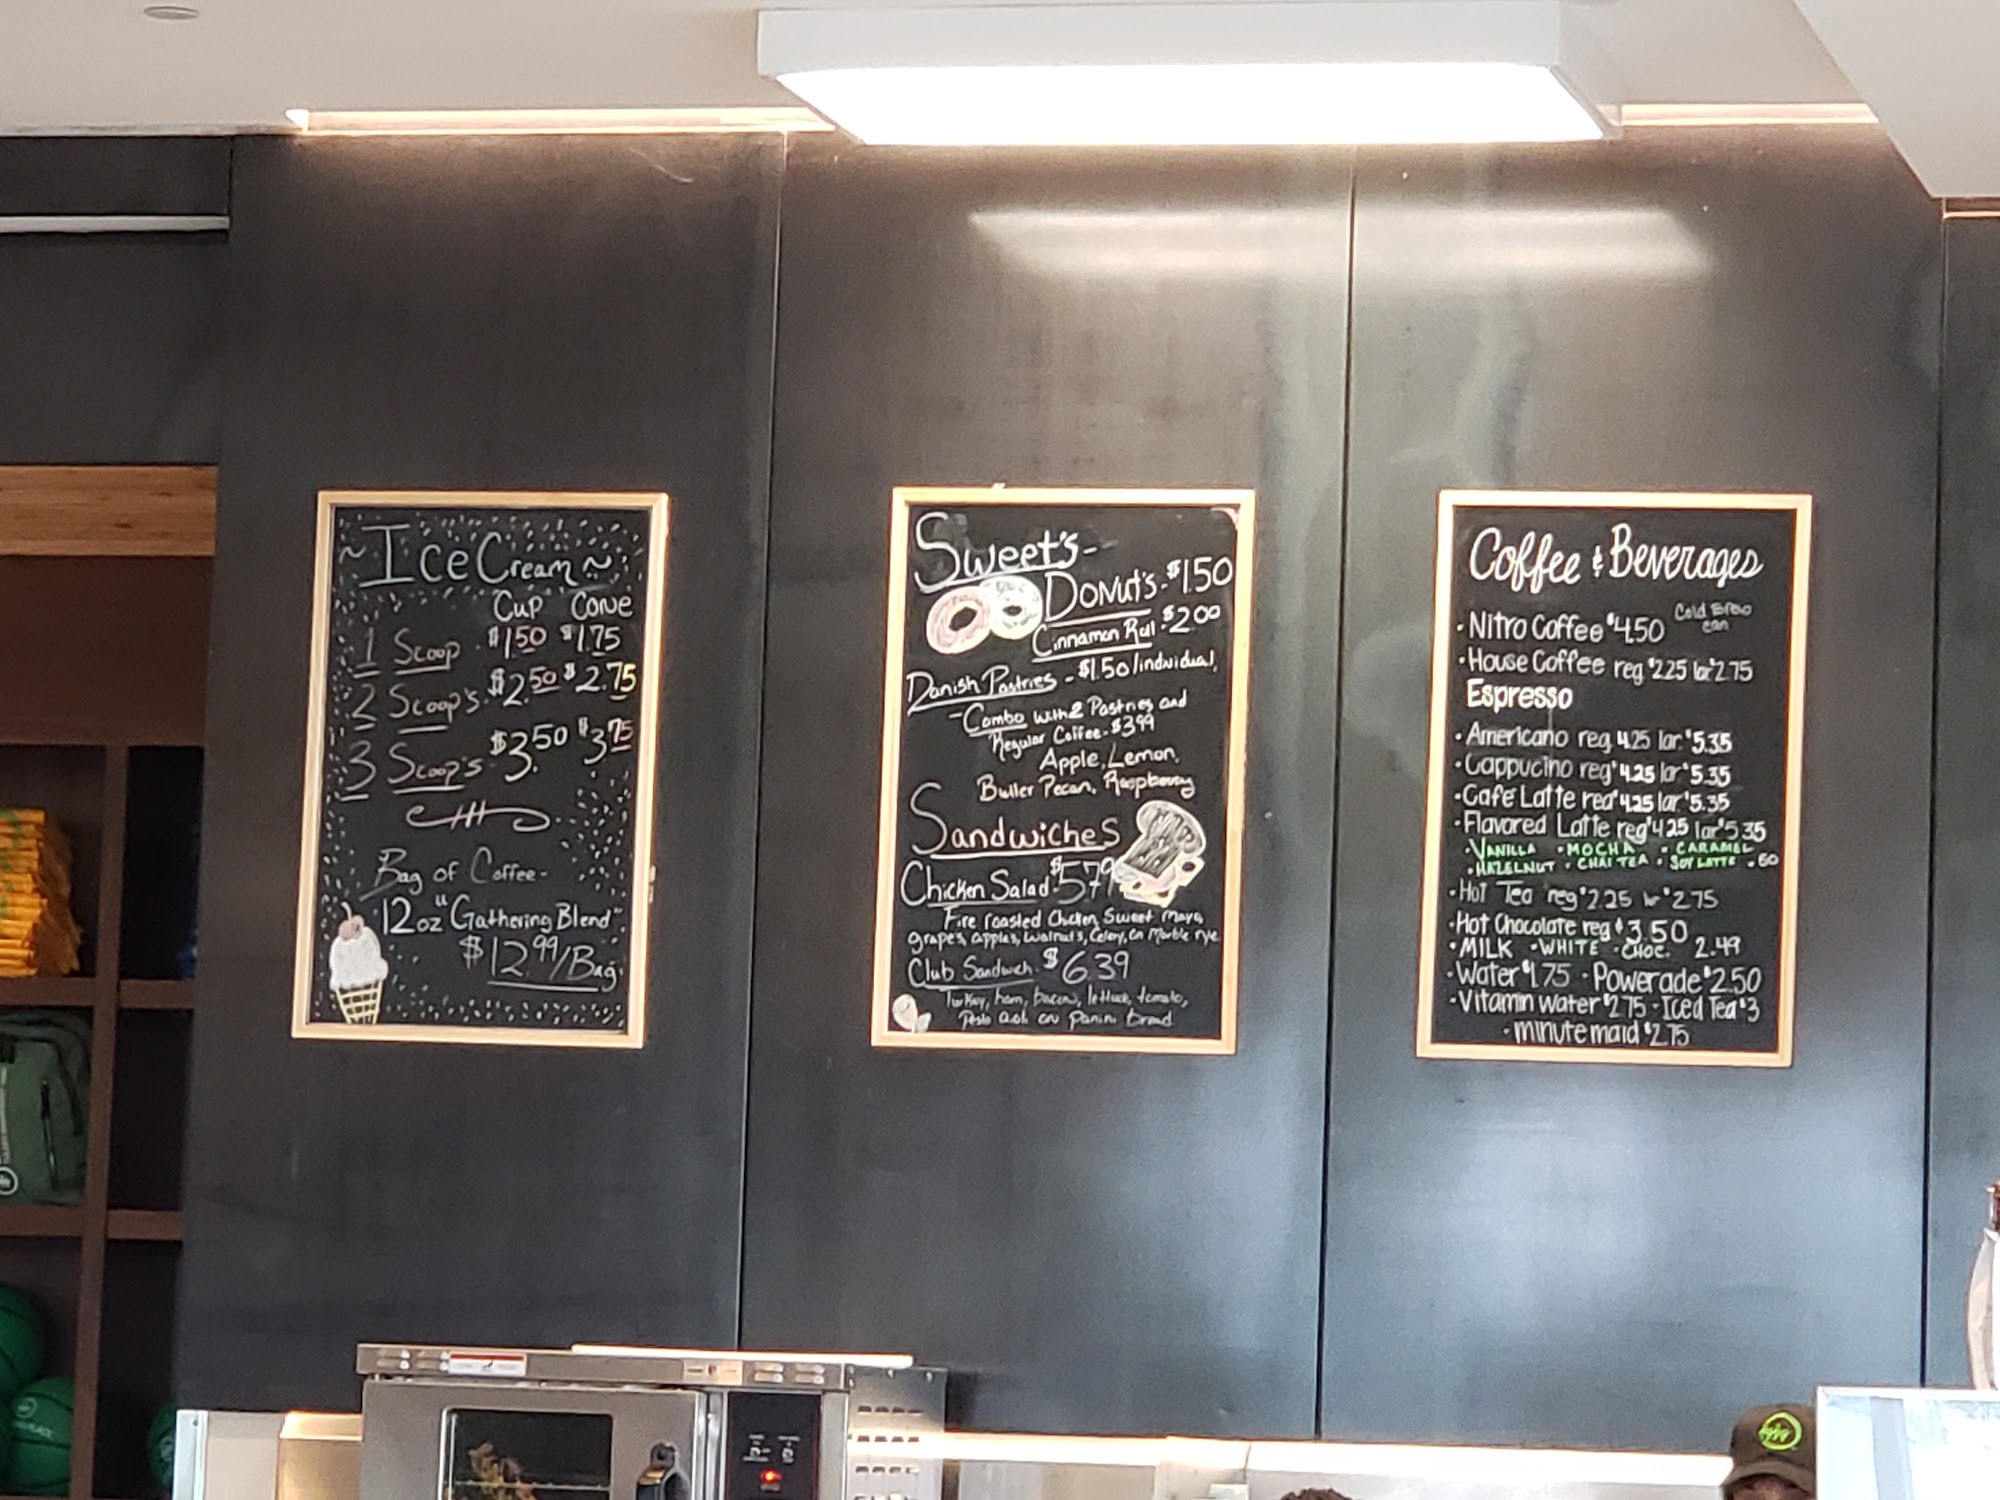 ~ Ice Cream ~
Cup Cone
1 Scoop - $1.50 $1.75
2 Scoop's - $2.50 $2.75
3 Scoop's $3.50 $3.75
Bag of Coffee -
12oz "Gathering Blend"
$12.99/Bag
Sweet's -
Donut's - $1.50
Cinnamon Roll - $2.00
Danish Pastries - $1.50/individual,
- Combo with 2 Pastries and
Regular Coffee - $3.99
Apple, Lemon,
Butter Pecan, Raspberry
Sandwiches
Chicken Salad - $5.79
Fire roasted Chicken, Sweet mayo,
grape's, apple's, walnut's, Celery, on Marble rye
Club Sandwich $6.39
Turkey, ham, bacon, lettuce, tomato,
Pesto aioli on panini bread
Coffee & Beverages
· Nitro Coffee $4.50 Cold Brew
can
· House Coffee reg $2.25 lar $2.75
Espresso
· Americano reg 4.25 lar. $5.35
· Cappucino reg $4.25 lar $5.35
· Café Latte reg $4.25 lar $5.35
· Flavored Latte reg $4.25 lar $5.35
· VANILLA · MOCHA · CARAMEL
· HAZELNUT · CHAI TEA · SOY LATTE .60
· Hot Tea reg $2.25 lar $2.75
· Hot Chocolate reg $3.50
· MILK · WHITE · CHOC. 2.49
· Water $1.75 · Powerade $2.50
· Vitamin water $2.75 · Iced Tea $3
· minute maid $2.75